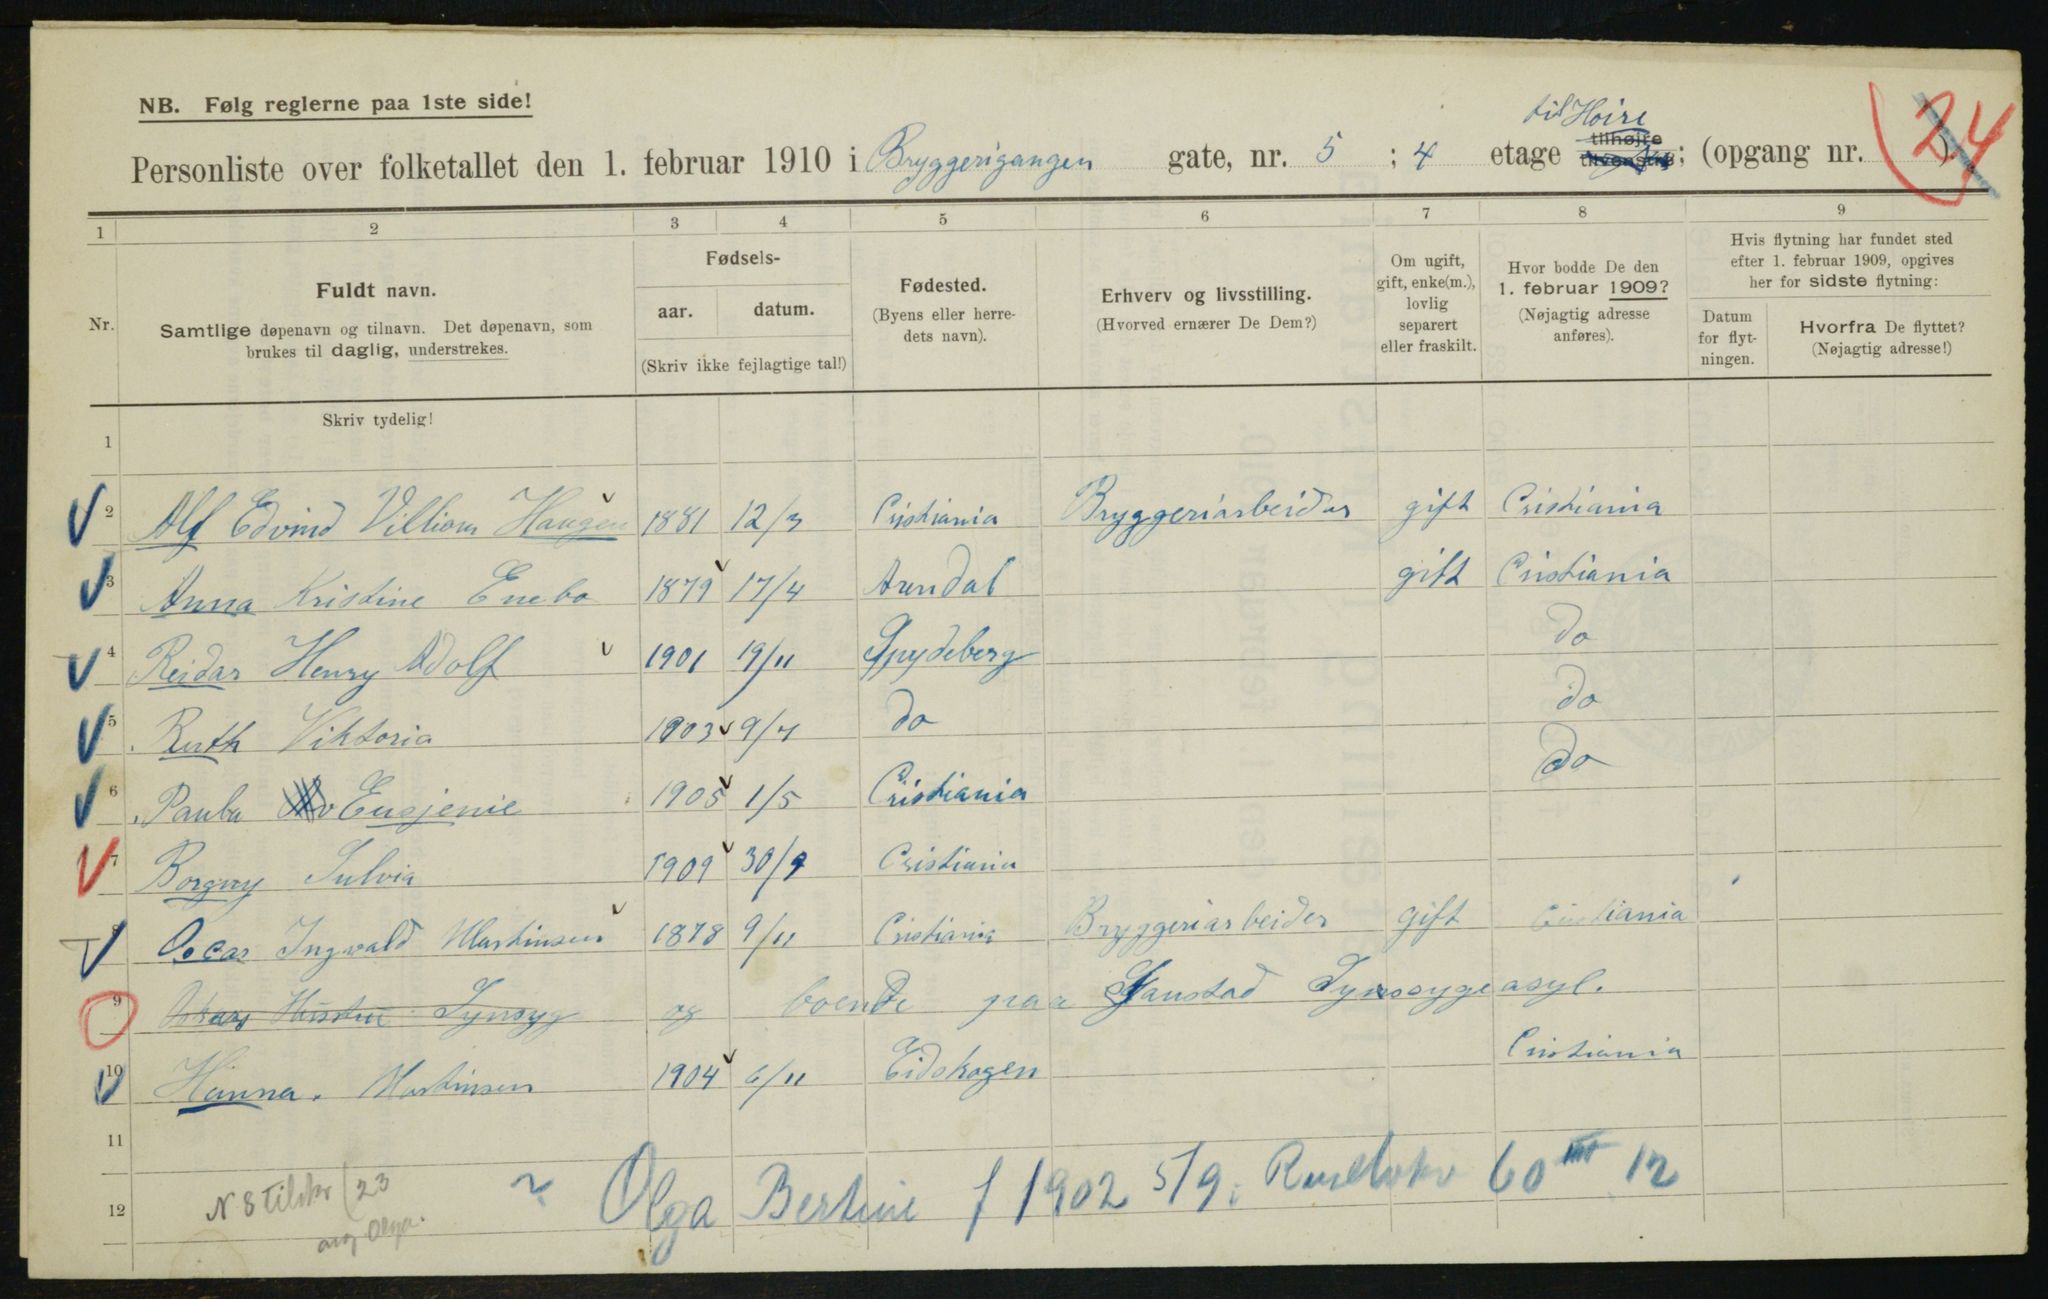 NB. Følg reglerne paa 1ste side!
til Høire
Personliste over folketallet den 1. februar 1910 i Bryggerigangen gate, nr. 5 ; 4 etage tilhøjre tilvenstre; (opgang nr. ).
24
1 2 3 4 5 6 7 8 9
Nr.
Fuldt navn.
Samtlige døpenavn og tilnavn. Det døpenavn, som
brukes til daglig, understrekes.
Fødsels-
aar. datum.
(Skriv ikke fejlagtige tal!)
Fødested.
(Byens eller herre-
dets navn).
Erhverv og livsstilling.
(Hvorved ernærer De Dem?)
Om ugift,
gift, enke(m.),
lovlig
separert
eller fraskilt.
Hvor bodde De den
1. februar 1909?
(Nøjagtig adresse
anføres).
Hvis flytning har fundet sted
efter 1. februar 1909, opgives
her for sidste flytning:
Datum
for flyt-
ningen.
Hvorfra De flyttet?
(Nøjagtig adresse!)
Skriv tydelig!
1
2 Alf Edvind Villiam Haugen 1881 12/3 Cristiania Bryggeriarbeider gift Cristiania
3 Anna Kristine Enebo 1879 17/4 Arendal gift Cristiania
4 Reidar Henry Adolf 1901 19/11 Spydeberg do
5 Ruth Viktoria 1903 9/7 do do
6 Paula Eusjenie 1905 1/5 Cristiania do
7 Borgny Sulvia 1909 30/9 Cristiania
8 Oscar Ingvald Martinsen 1878 9/11 Cristiania Bryggeriarbeider gift Cristiania
9 Hustru Synsyg og boende paa Gaustad Synssygeasyl.
10 Hanna. Martinsen 1904 6/11 Eidskogen Cristiania
11
12 Olga Bertine f 1902 5/9. 60 III 12
N 8 tilskr 23
ang Olga.